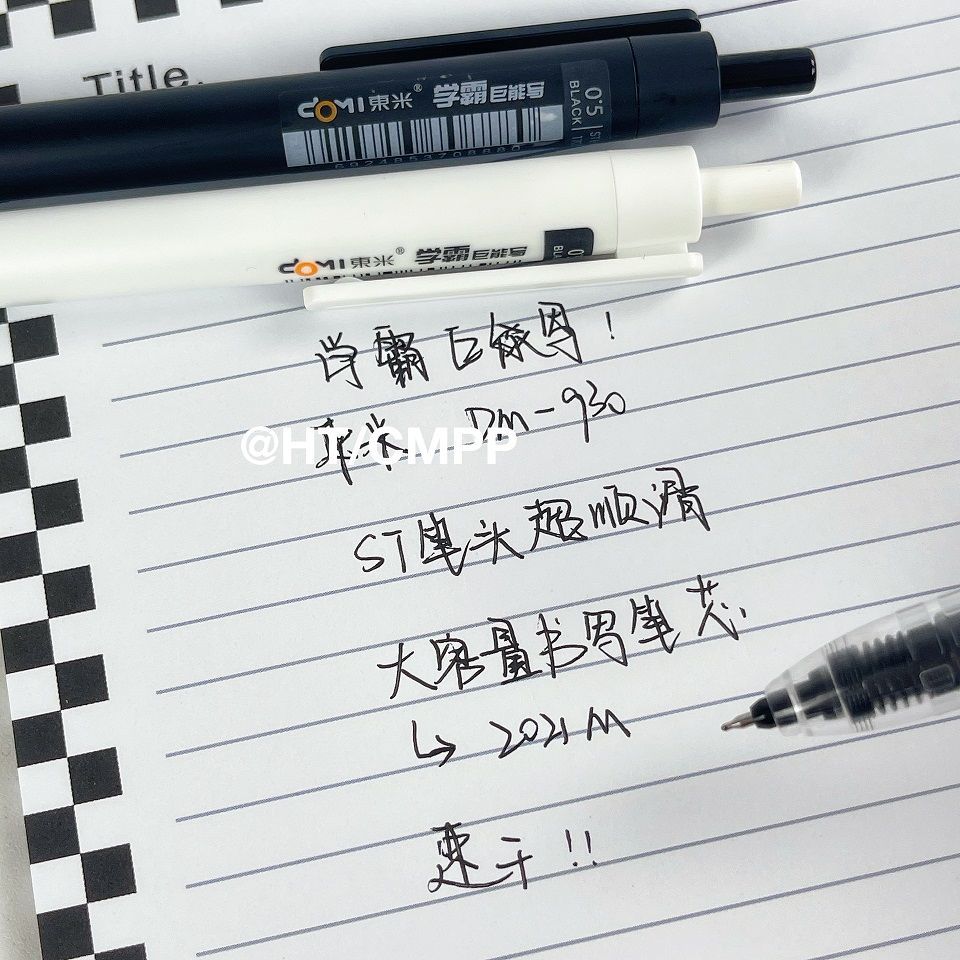 Title.
DOMI東米® 学霸巨能写
0.5 BLACK
6924853708880
DOMI東米® 学霸巨能写
学霸巨能写!
東米 DM-930
@HT/CMPP
ST笔头超顺滑
大容量书写笔芯
↳ 2021M
速干!!